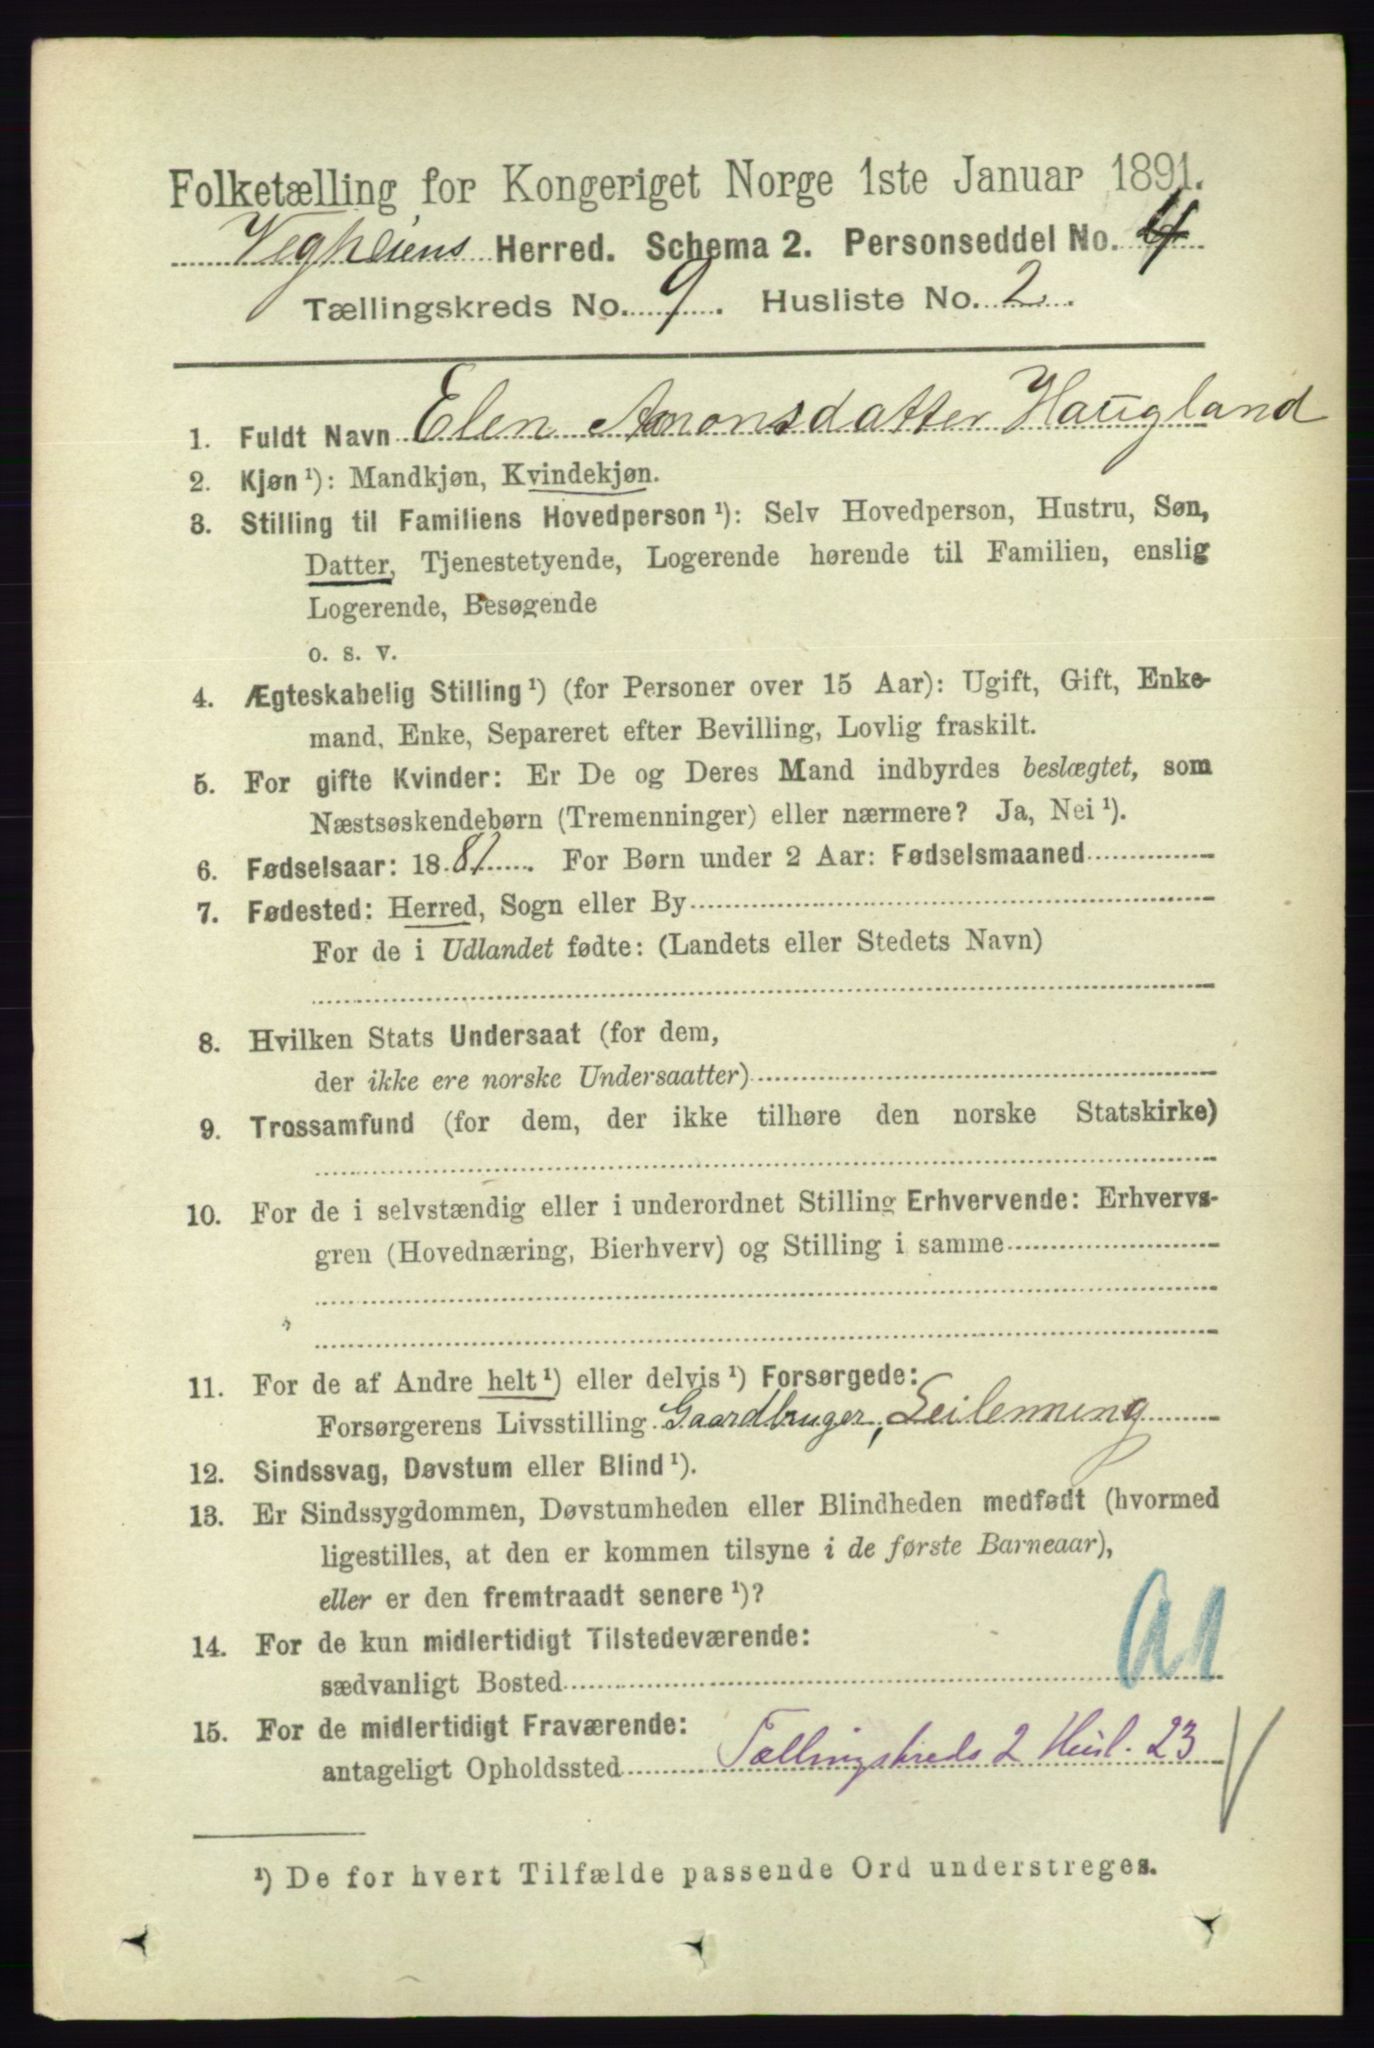 Folketælling for Kongeriget Norge 1ste Januar 1891.
Vegheiens Herred. Schema 2. Personseddel No. 4
Tællingskreds No. 9. Husliste No. 2.
1. Fuldt Navn Elen Amonsdatter Haugland
2. Kjøn ¹): Mandkjøn, Kvindekjøn.
3. Stilling til Familiens Hovedperson ¹): Selv Hovedperson, Hustru, Søn,
Datter, Tjenestetyende, Logerende hørende til Familien, enslig
Logerende, Besøgende
o. s. v.
4. Ægteskabelig Stilling ¹) (for Personer over 15 Aar): Ugift, Gift, Enke-
mand, Enke, Separeret efter Bevilling, Lovlig fraskilt.
5. For gifte Kvinder: Er De og Deres Mand indbyrdes beslægtet, som
Næstsøskendebørn (Tremenninger) eller nærmere? Ja, Nei ¹).
6. Fødselsaar: 1881. For Børn under 2 Aar: Fødselsmaaned
7. Fødested: Herred, Sogn eller By
For de i Udlandet fødte: (Landets eller Stedets Navn)
8. Hvilken Stats Undersaat (for dem,
der ikke ere norske Undersaatter)
9. Trossamfund (for dem, der ikke tilhøre den norske Statskirke)
10. For de i selvstændig eller i underordnet Stilling Erhvervende: Erhvervs-
gren (Hovednæring, Bierhverv) og Stilling i samme
11. For de af Andre helt ¹) eller delvis ¹) Forsørgede:
Forsørgerens Livsstilling Gaardbruger, Leilenning
12. Sindssvag, Døvstum eller Blind ¹).
13. Er Sindssygdommen, Døvstumheden eller Blindheden medfødt (hvormed
ligestilles, at den er kommen tilsyne i de første Barneaar),
eller er den fremtraadt senere ¹)?
14. For de kun midlertidigt Tilstedeværende:
sædvanligt Bosted
15. For de midlertidigt Fraværende:
antageligt Opholdssted Tællingskreds 2 Husl. 23
¹) De for hvert Tilfælde passende Ord understreges.